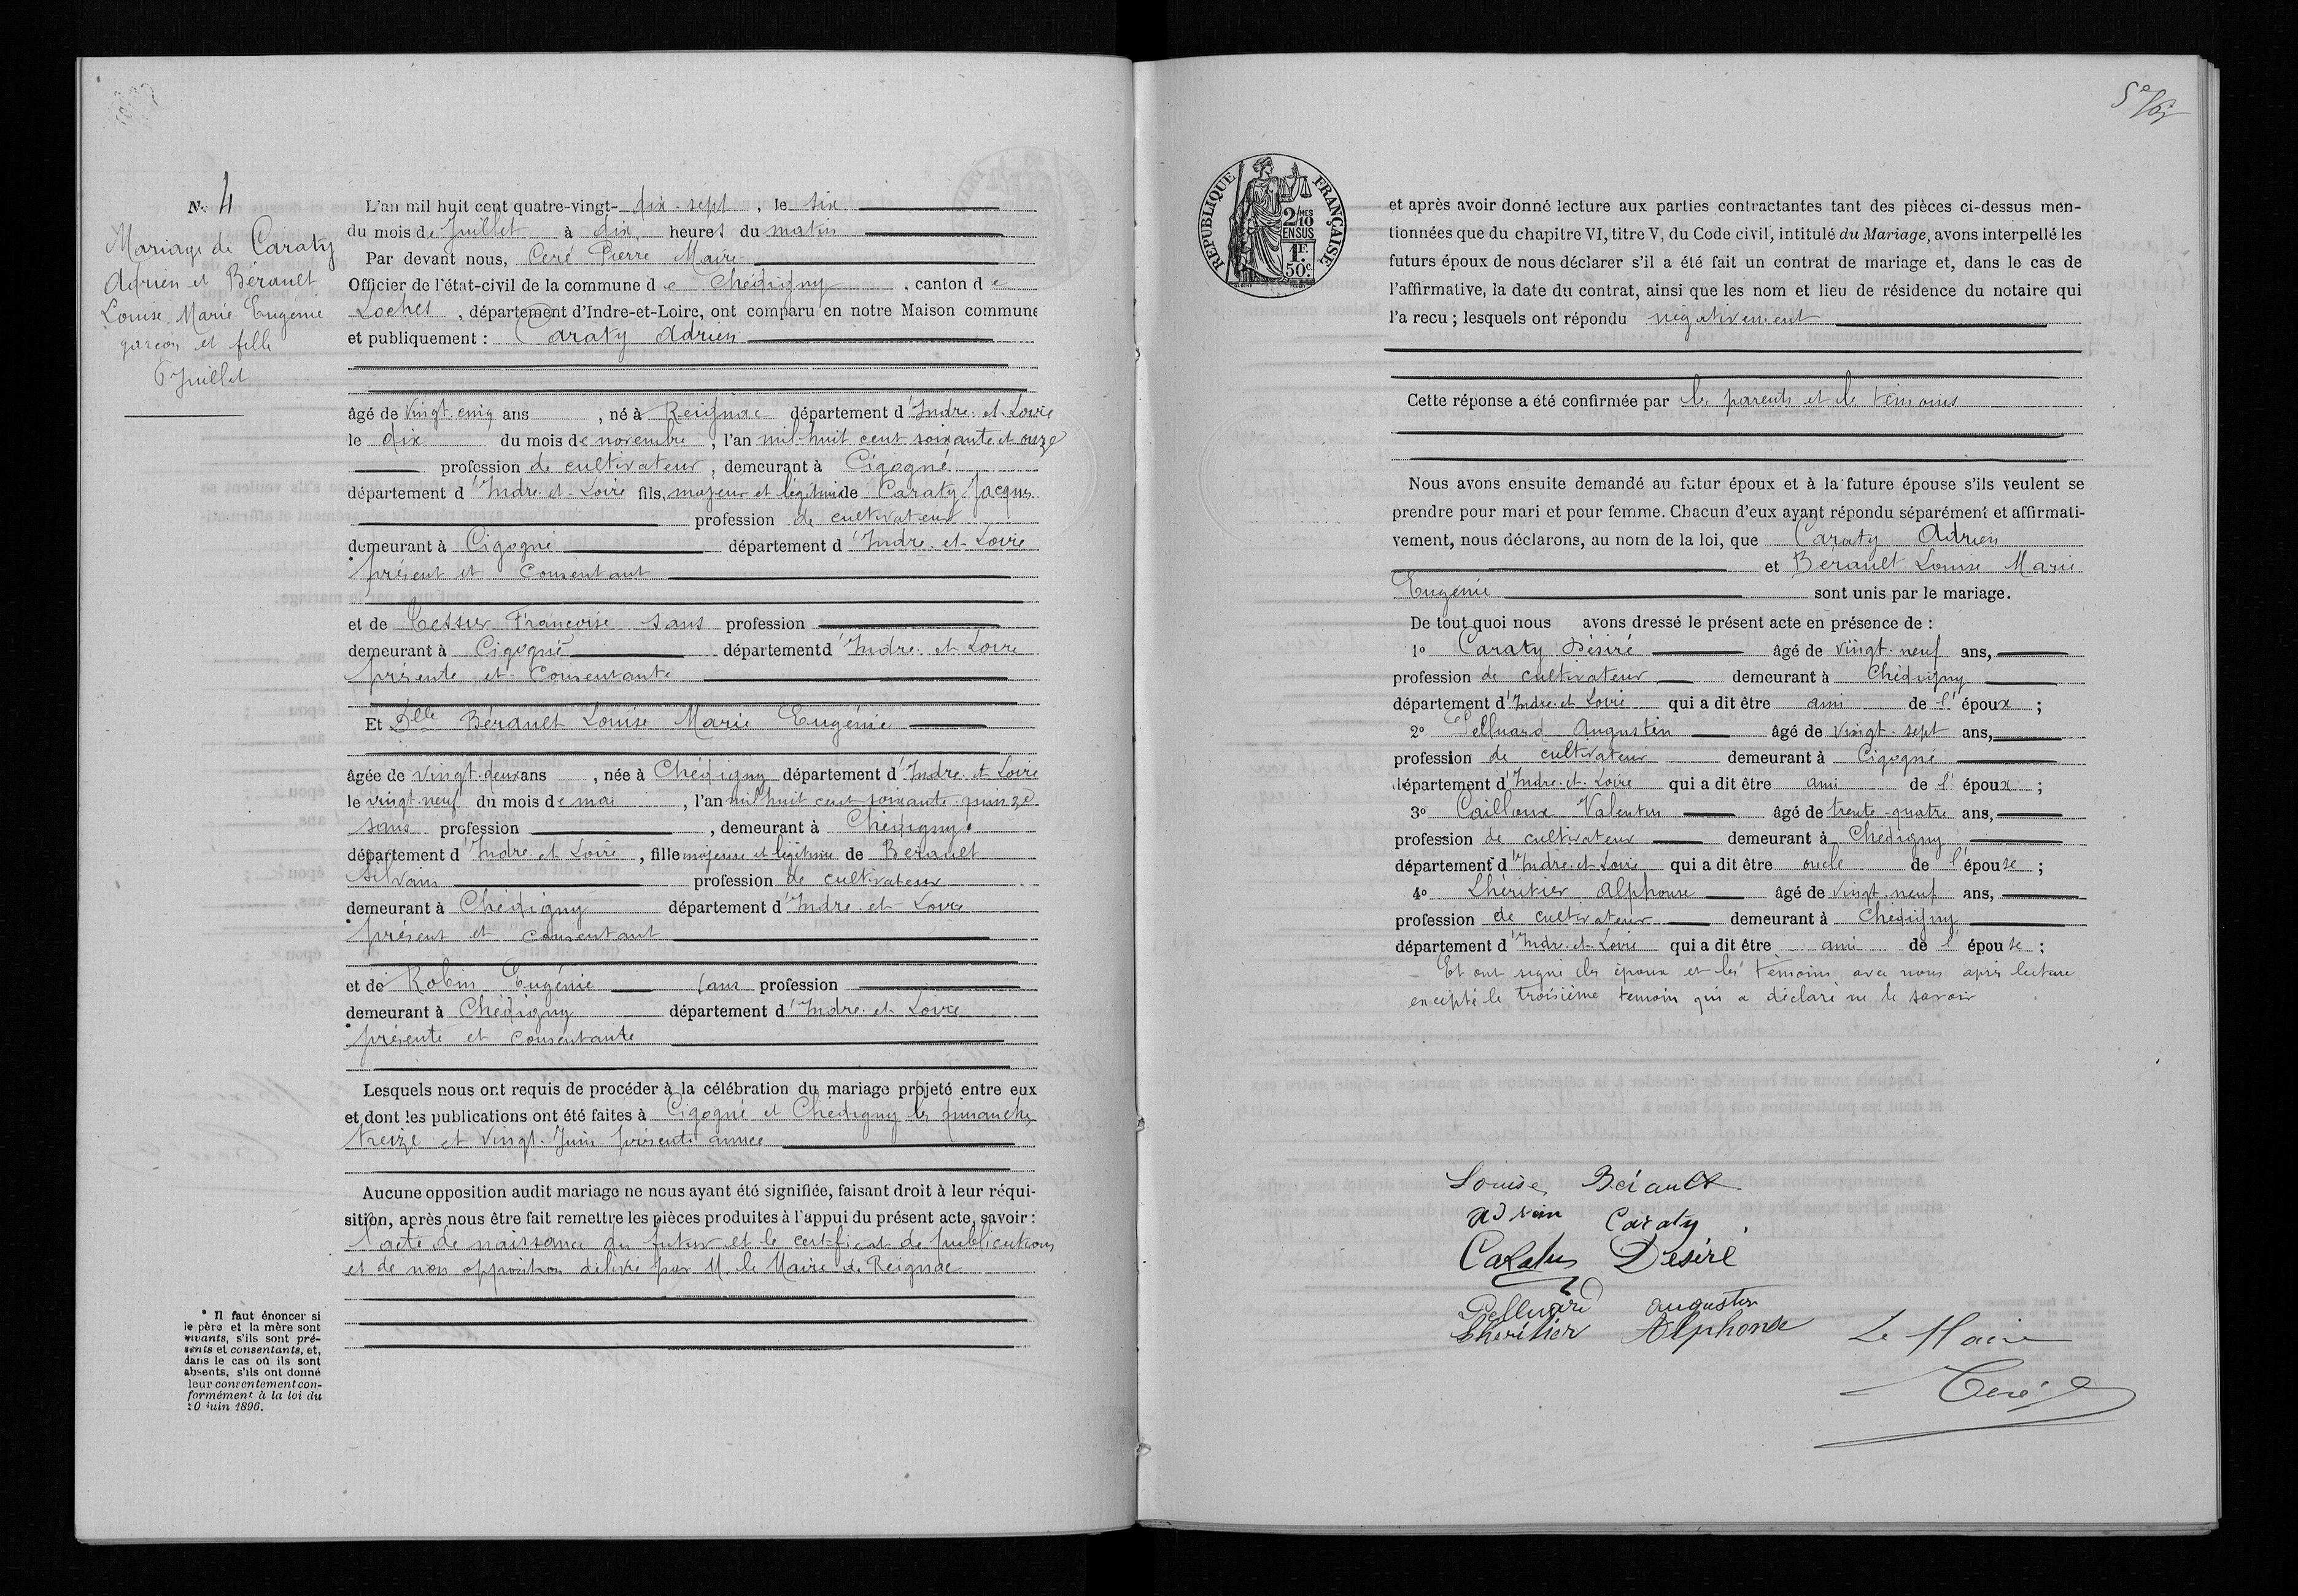 N° 4
Mariage de Caraty
Adrien et Berault
Louise Marie Eugénie
garçon et fille
6 Juillet
L'an mil huit cent quatre-vingt- dix-sept , le six
du mois de Juillet à dix heures du matin
Par devant nous, Ceré Pierre Maire
Officier de l'état-civil de la commune de Chédigny , canton de
Loches , département d'Indre-et-Loire, ont comparu en notre Maison commune
et publiquement : Caraty Adrien
âgé de vingt-cinq ans , né à Reignac département d'Indre-et-Loire
le dix du mois de novembre , l'an mil huit cent soixante et onze
profession de cultivateur , demeurant à Cigogné
département d'Indre-et-Loire fils, majeur et légitime de Caraty Jacques
profession de cultivateur
demeurant à Cigogné département d'Indre-et-Loire
* présent et consentant
et de Tessier Françoise sans profession
demeurant à Cigogné département d'Indre-et-Loire
présente et consentante
Et Dlle Bérault Louise Marie Eugénie
âgée de vingt-deux ans , née à Chédigny département d'Indre et Loire
le vingt-neuf du mois de mai , l'an mil huit cent soixante-quinze
sans profession , demeurant à Chédigny
département d'Indre et Loire , fille majeure et légitime de Berault
Silvain profession de cultivateur
demeurant à Chédigny département d'Indre-et-Loire
* présent et consentant
et de Robin Eugénie sans profession
demeurant à Chédigny département d'Indre-et-Loire
* présente et consentante
Lesquels nous ont requis de procéder à la célébration du mariage projeté entre eux
et dont les publications ont été faites à Cigogné et Chédigny les dimanches
treize et vingt Juin présente année
Aucune opposition audit mariage ne nous ayant été signifiée, faisant droit à leur réqui-
sition, après nous être fait remettre les pièces produites à l'appui du présent acte, savoir :
l'acte de naissance du futur et le certificat de publications
et de non opposition délivré par M. le Maire de Reignac
* Il faut énoncer si
le père et la mère sont
vivants, s'ils sont pré-
sents et consentants, et,
dans le cas où ils sont
absents, s'ils ont donné
leur consentement con-
formément à la loi du
20 juin 1896.
RÉPUBLIQUE FRANÇAISE
2/MES
10
EN SUS
1F.
50c.
et après avoir donné lecture aux parties contractantes tant des pièces ci-dessus men-
tionnées que du chapitre VI, titre V, du Code civil, intitulé du Mariage, avons interpellé les
futurs époux de nous déclarer s'il a été fait un contrat de mariage et, dans le cas de
l'affirmative, la date du contrat, ainsi que les nom et lieu de résidence du notaire qui
l'a recu ; lesquels ont répondu négativement
Cette réponse a été confirmée par les parents et les témoins
Nous avons ensuite demandé au futur époux et à la future épouse s'ils veulent se
prendre pour mari et pour femme. Chacun d'eux ayant répondu séparément et affirmati-
vement, nous déclarons, au nom de la loi, que Caraty Adrien
et Berault Louise Marie
Eugénie sont unis par le mariage.
De tout quoi nous avons dressé le présent acte en présence de :
1° Caraty Désiré âgé de vingt-neuf ans,
profession de cultivateur demeurant à Chédigny
département d'Indre-et-Loire qui a dit être ami de l'époux ;
2° Pelluard Augustin âgé de vingt-sept ans,
profession de cultivateur demeurant à Cigogné
département d'Indre-et-Loire qui a dit être ami de l'époux ;
3° Cailloux Valentin âgé de trente-quatre ans,
profession de cultivateur demeurant à Chédigny
département d'Indre-et-Loire qui a dit être oncle de l'épouse ;
4° Lhéritier Alphonse âgé de vingt-neuf ans,
profession de cultivateur demeurant à Chédigny
département d'Indre-et-Loire qui a dit être ami de l'épouse ;
Et ont signé les époux et les témoins avec nous après lecture
excepté le troisième temoin qui a déclaré ne le savoir
Louise Bérault
adrien Caraty
Désiré
Pelluard augustin
Lhéritier Alphonse
Le Maire
Ceré